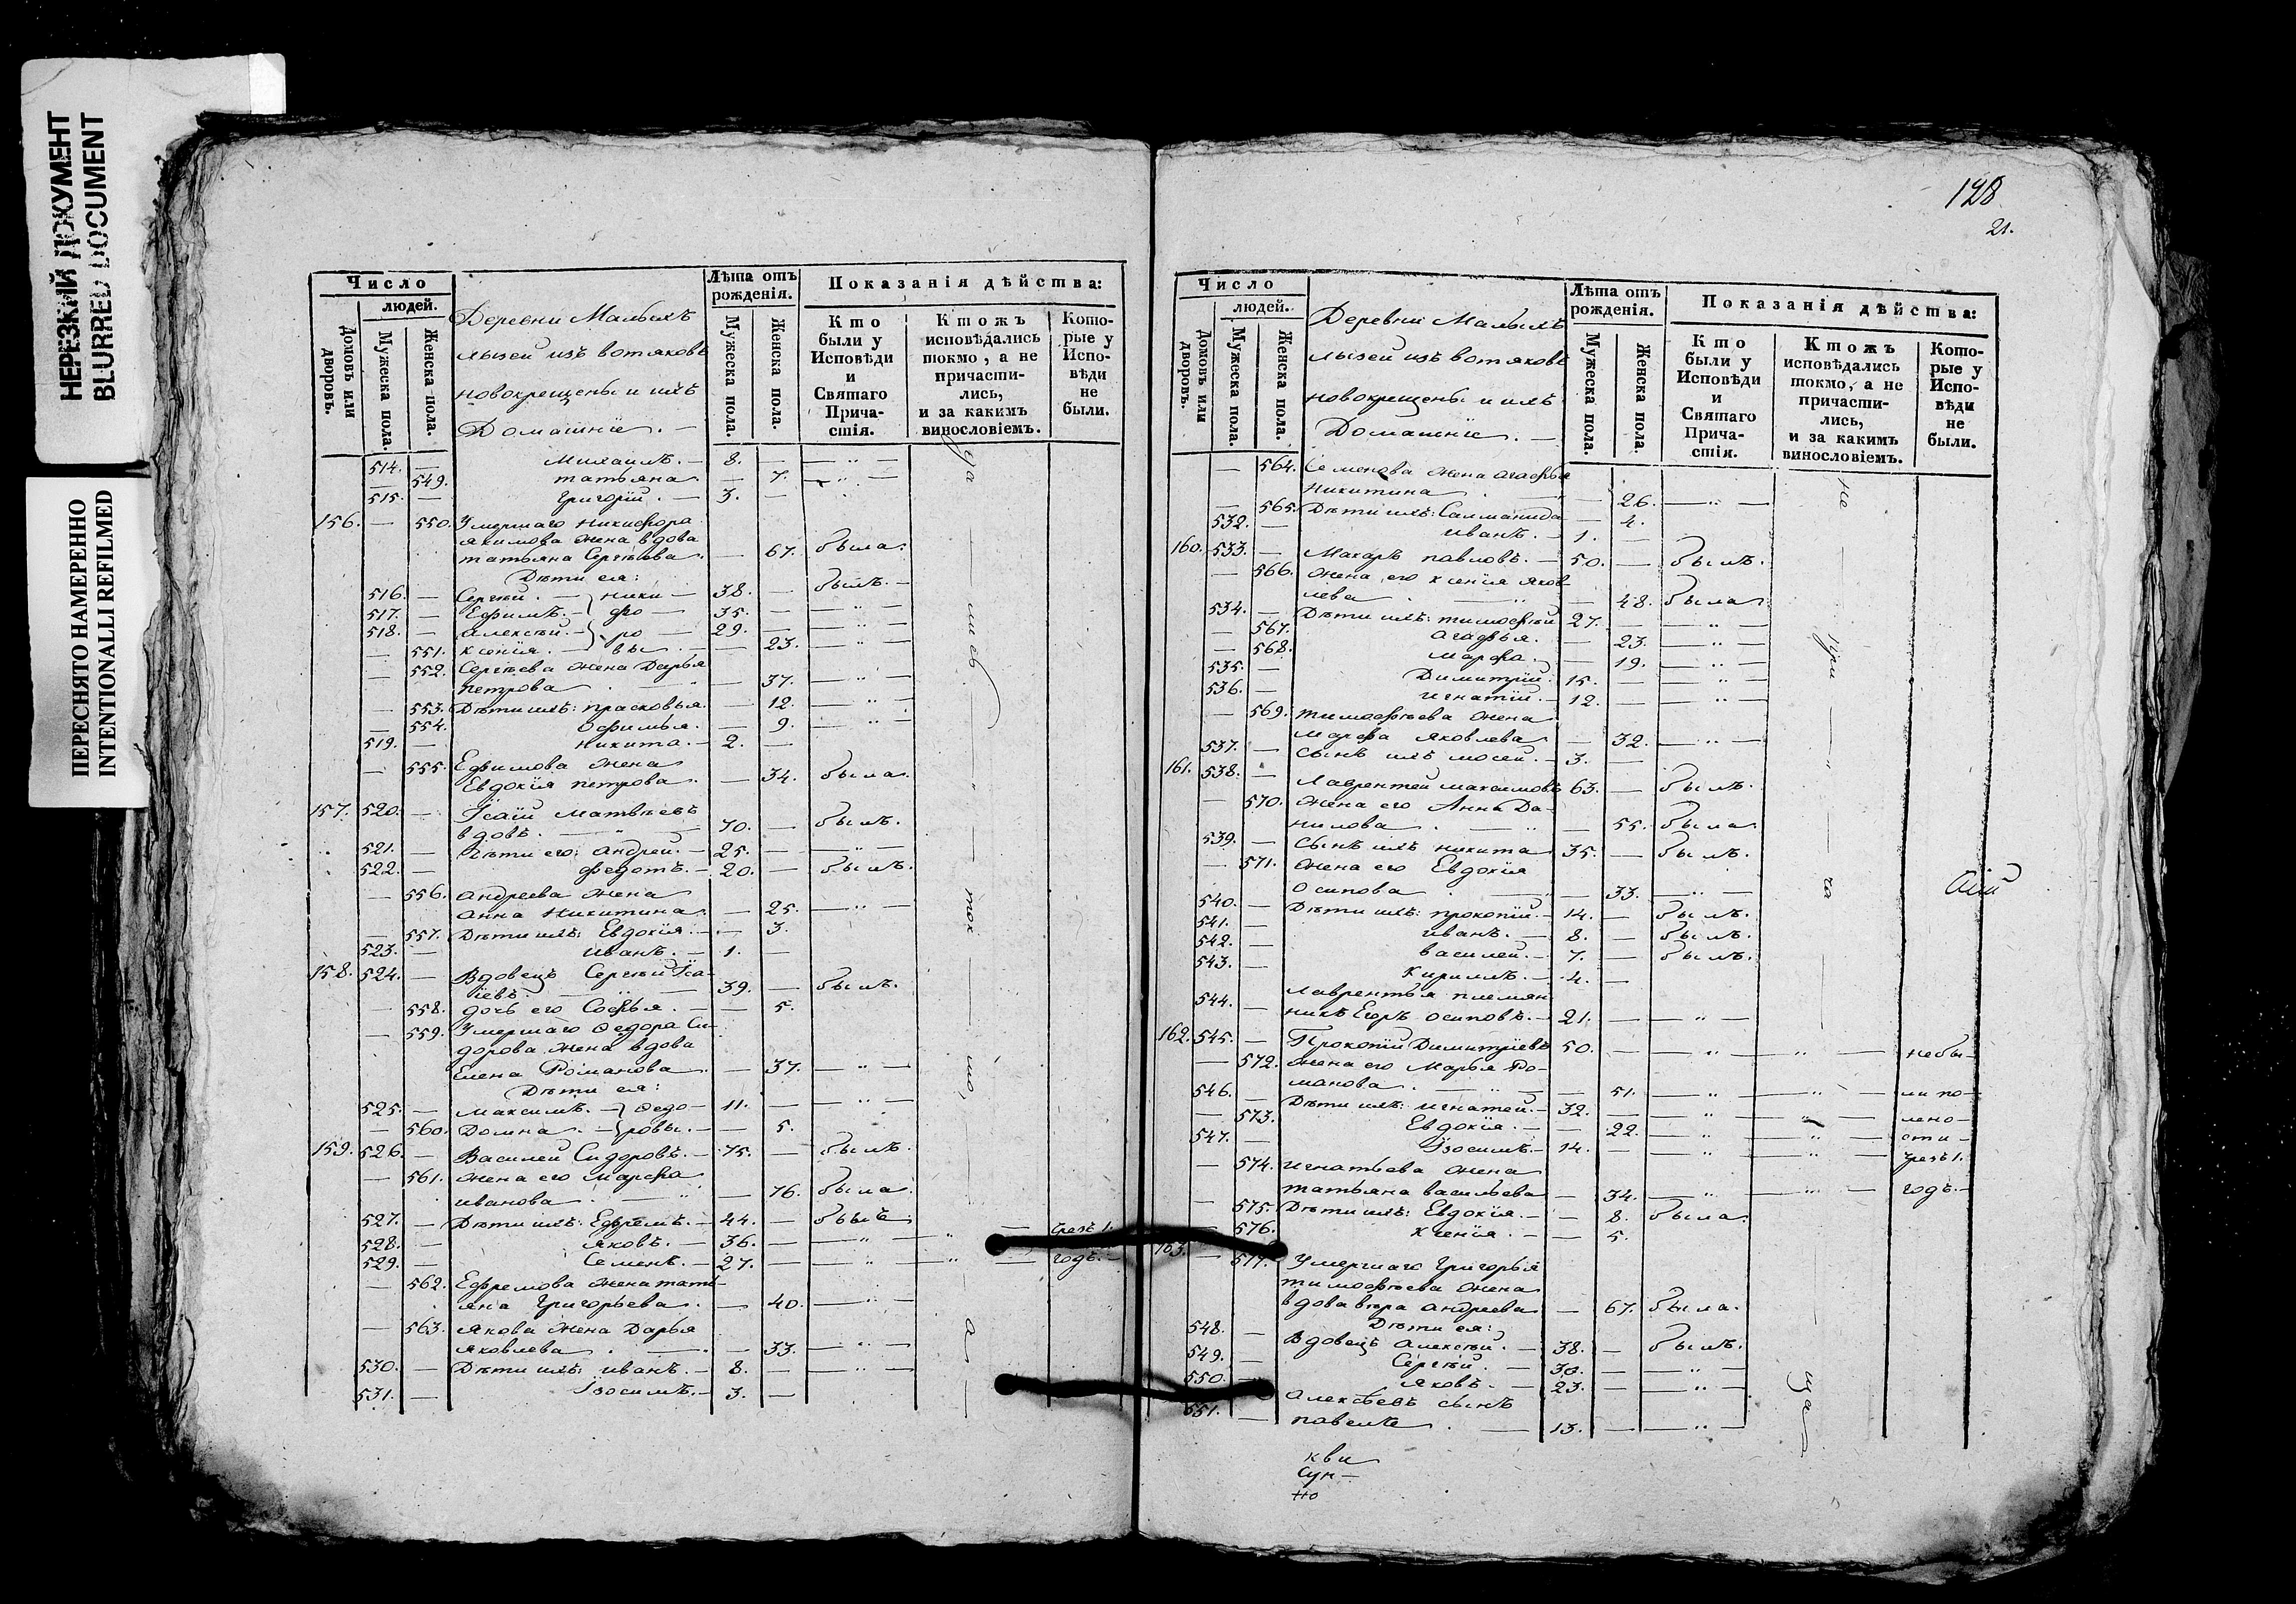 НЕРЕЗКИЙ ДОКУМЕНТ
BLURRED DOCUMENT
ПЕРЕСНЯТО НАМЕРЕННО
INTENTIONALLI REFILMED
Число
людей.
Домовъ или дворовъ.
Мужеска пола.
Женска пола.
Деревни Малыхъ
лызей изъ вотяковъ
новокрещены и ихъ
Домашніе. —
Лѣта отъ рожденія.
Мужеска пола.
Женска пола.
Показанія дѣйства:
Кто были у Исповѣди и Святаго Причастія.
Ктожъ исповѣдались токмо, а не причастились, и за какимъ винословіемъ.
Которые у Исповѣди не были.
514. — Михаилъ. — 8. — „ —
— 549. татьяна — 7. — „ —
515. — Григорій. — 3. —
156. — 550. Умершаго Никифора
якимова жена вдова
татьяна Сергѣева. — 67. была.
Дѣти ея:
516. — Сергѣй. — ники — 38. — былъ. —
517. — Ефимъ. — фо — 35. — „ —
518. — алексѣй. — ро — 29. — „ —
— 551. ксенія. — вы. — — 23. — „ —
— 552. Сергѣева жена Дарья
петрова — 37. — „ —
— 553. Дѣти ихъ: прасковья. — 12. — „ —
— 554. Офимья. — 9. — „ —
519. — никита. — 2. —
— 555. Ефимова жена
Евдокія петрова. — 34. была.
157. 520. — Ісаій Матвѣевъ
вдовъ. — 70. — былъ.
521. — Дѣти его: андрей. — 25. — „ —
522. — федотъ. — 20. — былъ.
— 556. андреева жена
анна Никитина. — 25. — „ —
— 557. Дѣти ихъ: Евдокія. — — 3.
523. — иванъ. — 1. —
158. 524. — Вдовецъ Сергѣй Іса-
іевъ. — 39. — былъ.
— 558. дочь его Софья. — — 5.
— 559. Умершаго Ѳедора Си-
дорова жена вдова
Елена Романова — 37. — „ —
Дѣти ея:
525. — Максимъ. — Ѳедо- 11. — „ —
— 560. Домна. — ровы. — — 5.
159. 526. — Василей Сидоровъ. — 75. — былъ.
— 561. жена его Марфа
иванова — „ — 76. была.
527. — Дѣти ихъ: Ефремъ. — 44. — былъ
528. — яковъ. — 36. — „ „ — чрезъ 1.
529. — Семенъ. — 27. — „ „ — годъ. —
— 562. Ефремова жена тать-
яна Григорьева. — 40. — „ —
— 563. якова жена Дарья
яковлева — 33. — „ —
530. — Дѣти ихъ: иванъ. — 8. — „ —
531. — Ізосимъ. — 3. —
ток
мо,
а
128
21.
Число
людей.
Домовъ или дворовъ.
Мужеска пола.
Женска пола.
Деревни Малыхъ
лызей изъ вотяковъ
новокрещены и ихъ
Домашніе. —
Лѣта отъ рожденія.
Мужеска пола.
Женска пола.
Показанія дѣйства:
Кто были у Исповѣди и Святаго Причастія.
Ктожъ исповѣдались токмо, а не причастились, и за какимъ винословіемъ.
Которые у Исповѣди не были.
— 564. Семенова жена агафья
Никитина — 26. — „ —
— 565. Дѣти ихъ: Салманида — 4.
532. — иванъ. — 1. —
160. 533. — Макаръ павловъ. — 50. — былъ.
— 566. жена его ксенія яков-
лева — 48. была.
534. — Дѣти ихъ: тимофѣй 27. — „ —
— 567. агафья. — 23. — „ —
— 568. марфа. — 19. — „ —
535. — Димитрій. 15. — „ —
536. — игнатій. — 12. — „ —
— 569. тимофѣева жена
марфа яковлева — 32. — „ —
537. — сынъ ихъ мосей. — 3. —
161. 538. — Лаврентей максимовъ 63. — былъ.
— 570. жена его Анна Да-
нилова — 55. была.
539. — сынъ ихъ никита 35. — былъ.
— 571. жена его Евдокія
Осипова — 33. — „ —
540. — Дѣти ихъ: прокопій. — 14. — былъ.
541. — иванъ. — 8. — былъ.
542. — василей. — 7. — былъ.
543. — Кириллъ. — 4. —
544. — Лаврентья племян
никъ Егоръ осиповъ. — 21. — „ —
162. 545. — Прокопій Димитріевъ 50. — „ — „ — небы-
— 572. жена его Марья Ро-
манова — 51. — „ — „ — ли по-
546. — Дѣти ихъ: игнатей. — 32. — „ — „ — лено-
— 573. Евдокія. — — 22. — „ — „ — сти —
547. — Ізосимъ. — 14. — „ — „ — чрезъ 1.
— 574. игнатьева жена
татьяна васильева — 34. — „ — „ — годъ. —
— 575. Дѣти ихъ: Евдокія. — — 8. была.
— 576. ксенія. — — 5.
163. — 577. Умершаго Григорья
тимофѣева жена
вдова вѣра андреева — 67. была.
Дѣти ея:
548. — Вдовецъ алексѣй. — 38. — былъ.
549. — Сергѣй. — 30. — „ —
550. — яковъ. — 23. — „ —
алексѣевъ сынъ
551. — павелъ — 13. — „ —
не
при
ча
ща
кви
сун-
но